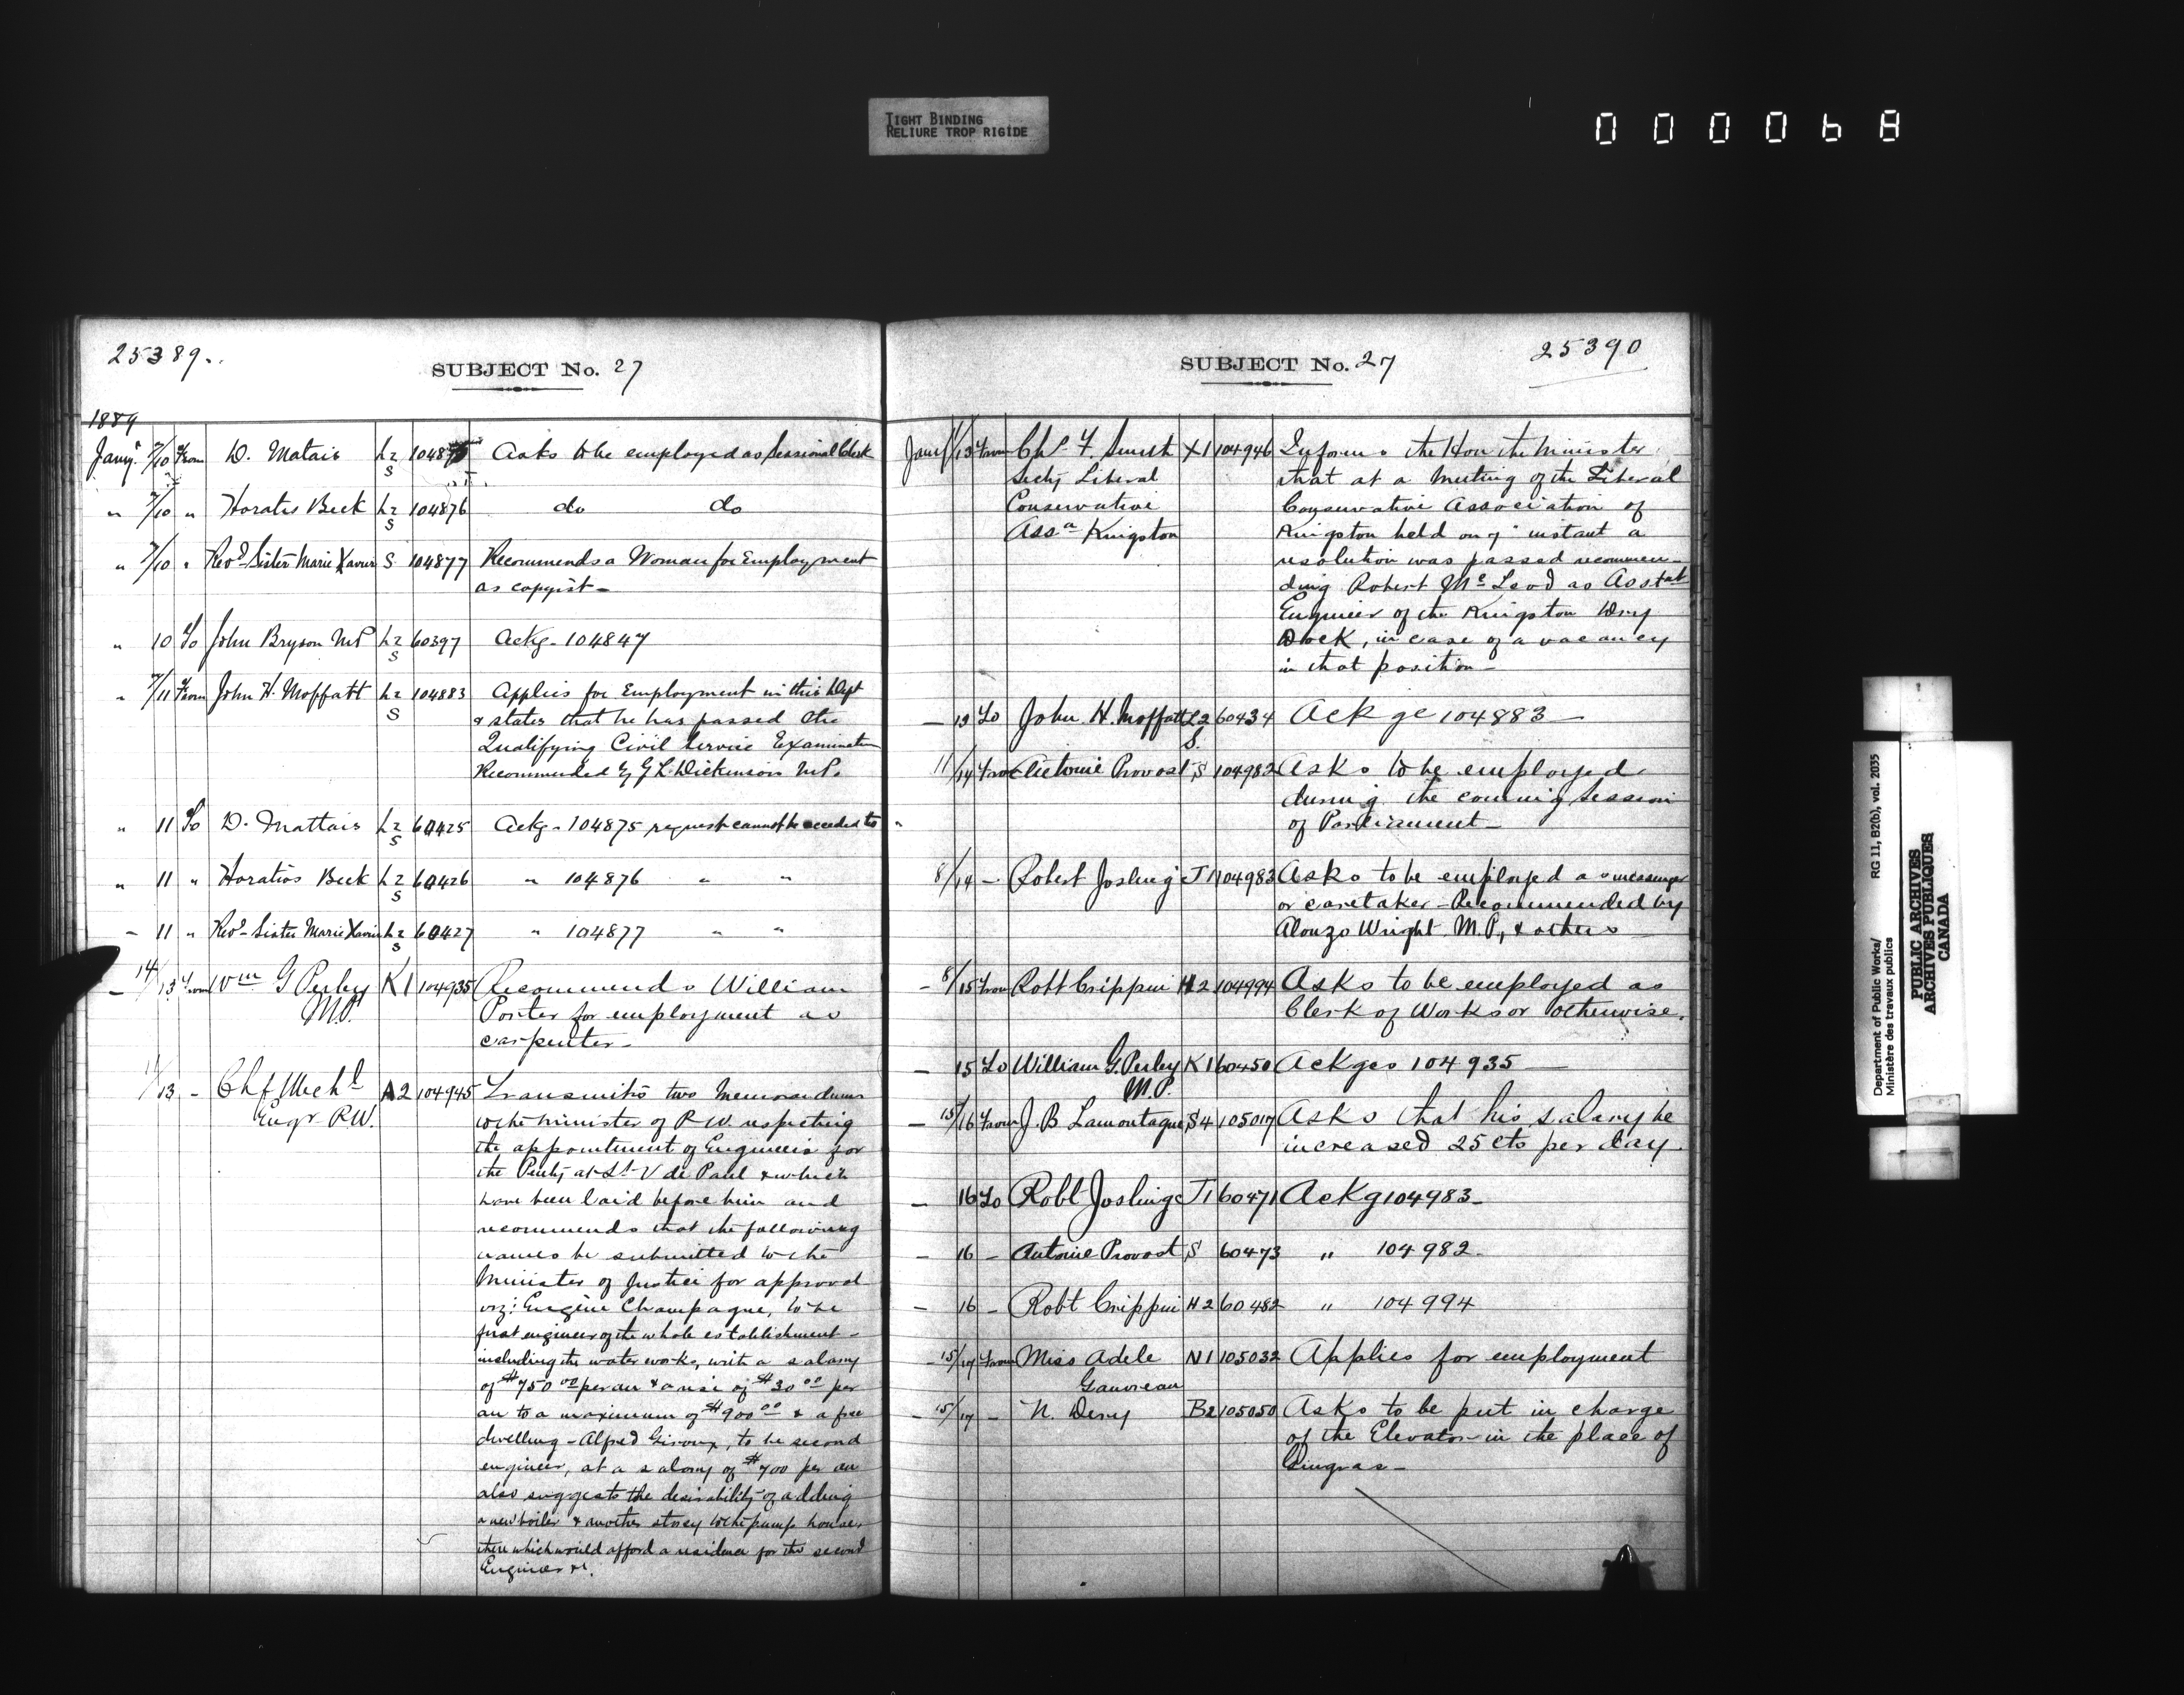 TIGHT BINDING
RELIURE TROP RIGIDE
000068
25389..
SUBJECT No. 27
1889
Jany. 7/10 From D. Matais L2 S 104875 Asks to be employed as Sessional Clerk
" 7/10 " Horatio Beck L2 S 104876 do do
" 7/10 " Revd Sister Marie Xavier S 104877 Recommends a Woman for Employment
as copyist -
" 10 To John Bryson M.P. L2 S 60397 Ackg - 104847
" 7/11 From John H. Moffatt L2 S 104883 Applies for Employment in this Dept
& states that he has passed the
Qualifying Civil Service Examination
Recommended by G L Dickinson M.P.
" 11 To D. Mattais L2 S 60425 Ackg - 104875 request cannot be acceded to
" 11 " Horatios Beck L2 S 60426 " 104876 " "
- 11 " Revd - Sister Marie Xavier L2 S 60427 " 104877 " "
- 14/13 From Wm G Perley K1 104935 Recommends William
M.P. Porter for employment as
carpenter -
11/13 - Chf Mechl A2 104945 Transmits two Memorandums
Engr. P.W. to the Minister of P.W. respecting
the appointment of Engineers for
the Penity at St V de Paul & which
have been laid before him and
recommends that the following
names be submitted to the
Minister of Justice for approval
viz: Eugène Champagne, to be
first engineer of the whole establishment -
including the water works, with a salary
of $750 00 per an & a rise of $30 00 per
an to a maximum of $900 00 & a free
dwelling - Alfred Giroux, to be second
engineer, at a salary of $700 per an
also suggests the desirability of adding
a new boiler & another storey to the pump house,
there which would afford a residence for the second
Engineer &c.
SUBJECT No. 27
25390
Jany 11/13 From Chs F. Smith X1 104946 Informs the Hon the Minister
Secty Liberal that at a Meeting of the Liberal
Conservative Conservative Association of
Assn Kingston Kingston held on 7" instant a
resolution was passed recommen-
ding Robert McLeod as Asstat
Engineer of the Kingston Dry
Dock, in case of a vacancy
in that position -
- 12 To John H. Moffatt L2 S. 60434 Ackge 104883 -
11/14 From Antoine Provost S 104982 Asks to be employed
during the coming Session
of Parliament -
8/14 - Robert Josling J1 104983 Asks to be employed as messenger
or caretaker - Recommended by
Alonzo Wright M.P., & others -
- 8/15 From Robt Crippin H2 104994 Asks to be employed as
Clerk of Works or otherwise.
- 15 To William G. Perley K1 60450 Ackges 104935 -
M.P.
- 15/16 From J. B Lamontagne S4 105017 Asks that his salary be
increased 25 cts per day
- 16 To Robt Joslinge J1 60471 Ackg 104983 -
- 16 - Antoine Provost S 60473 " 104982 -
- 16 - Robt Crippin H2 60482 " 104994
- 15/17 From Miss Adele N1 105032 Applies for employment
Gauvreau
- 15/17 - N. Dery B2 105050 Asks to be put in charge
of the Elevator in the place of
Gingras -
Department of Public Works/ RG 11, B2(b), vol. 2035
Ministère des travaux publics
PUBLIC ARCHIVES
ARCHIVES PUBLIQUES
CANADA